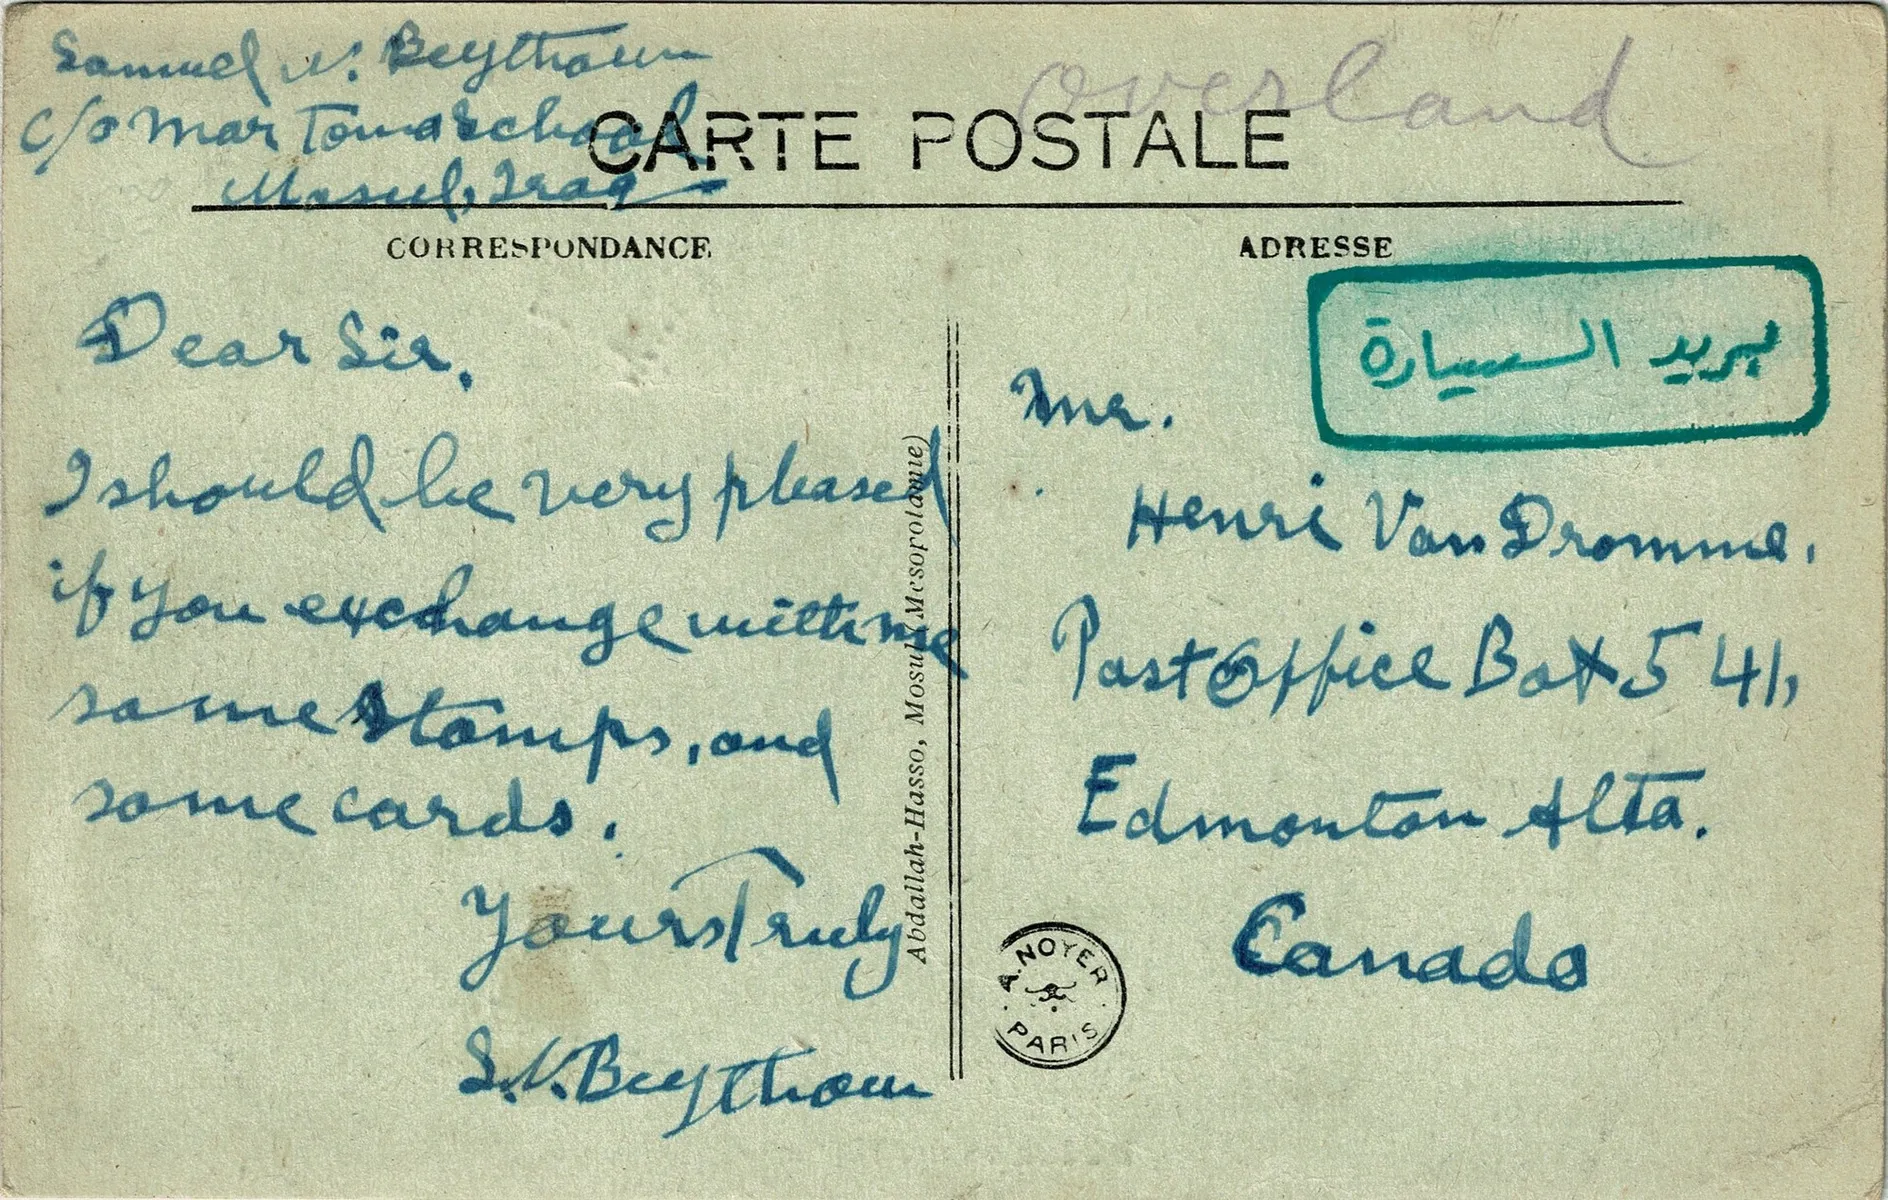 Samuel N. Beythoun
c/o Mar Toma School
Mosul, Iraq
overland
CARTE POSTALE
CORRESPONDANCE
ADRESSE
Dear Sir,
I should be very pleased
if you exchange with me
some stamps, and
some cards.
Yours Truly
S.N. Beythoun
Abdallah-Hasso, Mosul (Mesopotamie)
بريد السيارة
Mr.
Henri Van Dromme,
Post Office Box 541,
Edmonton Alta.
Canada
A. NOYER
PARIS